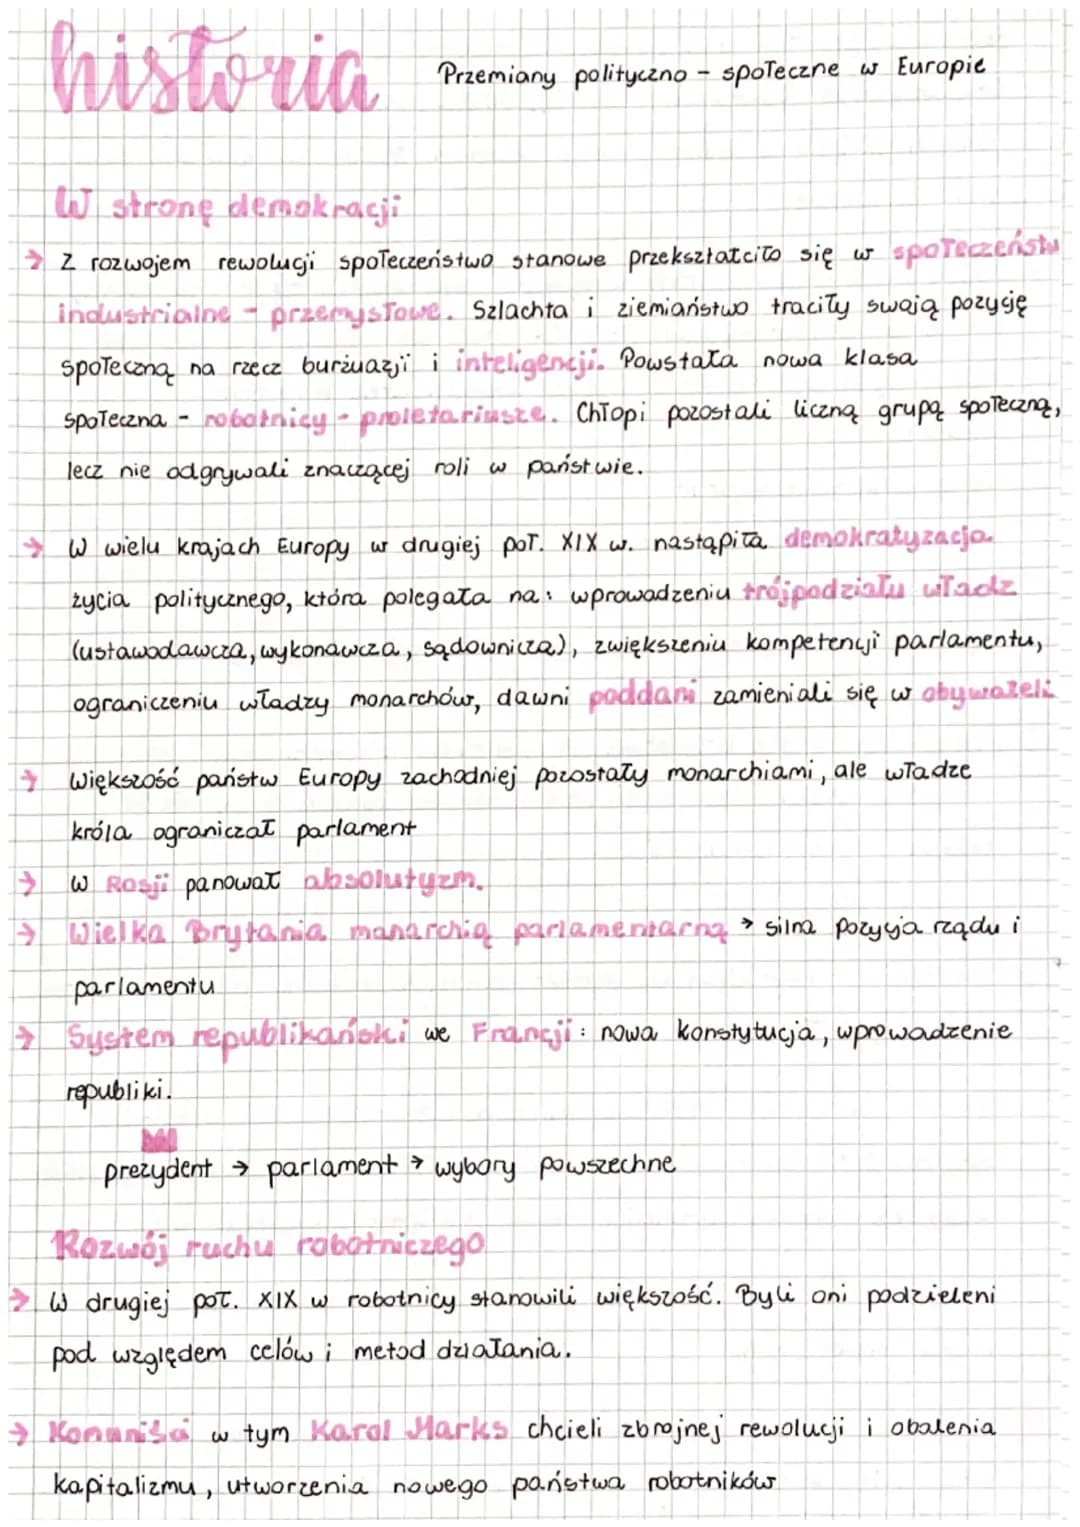 historia
Przemiany polityczno - społeczne w Europie
W stronę demokracji
→ Z rozwojem rewolucji społeczeństwo stanowe przekształciło się w społeczeństw
industrialne - przemysłowe. Szlachta i ziemiaństwo traciły swoją pozycję
społeczną na rzecz burżuazji i inteligencji. Powstała nowa klasa
społeczna - robotnicy - proletariusze. Chłopi pozostali liczną grupą społeczną,
lecz nie odgrywali znaczącej roli w państwie.
→ W wielu krajach Europy w drugiej poł. XIX w. nastąpiła demokratyzacja
życia politycznego, która polegała na: wprowadzeniu trójpodziału władz
(ustawodawcza, wykonawcza, sądownicza), zwiększeniu kompetencji parlamentu,
ograniczeniu władzy monarchów, dawni poddani zamieniali się w obywateli
→ Większość państw Europy zachodniej pozostały monarchiami, ale władze
króla ograniczał parlament
→ W Rosji panował absolutyzm.
→ Wielka Brytania monarchią parlamentarną → silna pozycja rządu i
parlamentu
→ System republikański we Francji: nowa konstytucja, wprowadzenie
republiki.
prezydent → parlament → wybory powszechne
Rozwój ruchu robotniczego
→ W drugiej poł. XIX w robotnicy stanowili większość. Byli oni podzieleni
pod względem celów i metod działania.
→ Komuniści w tym Karol Marks chcieli zbrojnej rewolucji i obalenia
kapitalizmu, utworzenia nowego państwa robotników